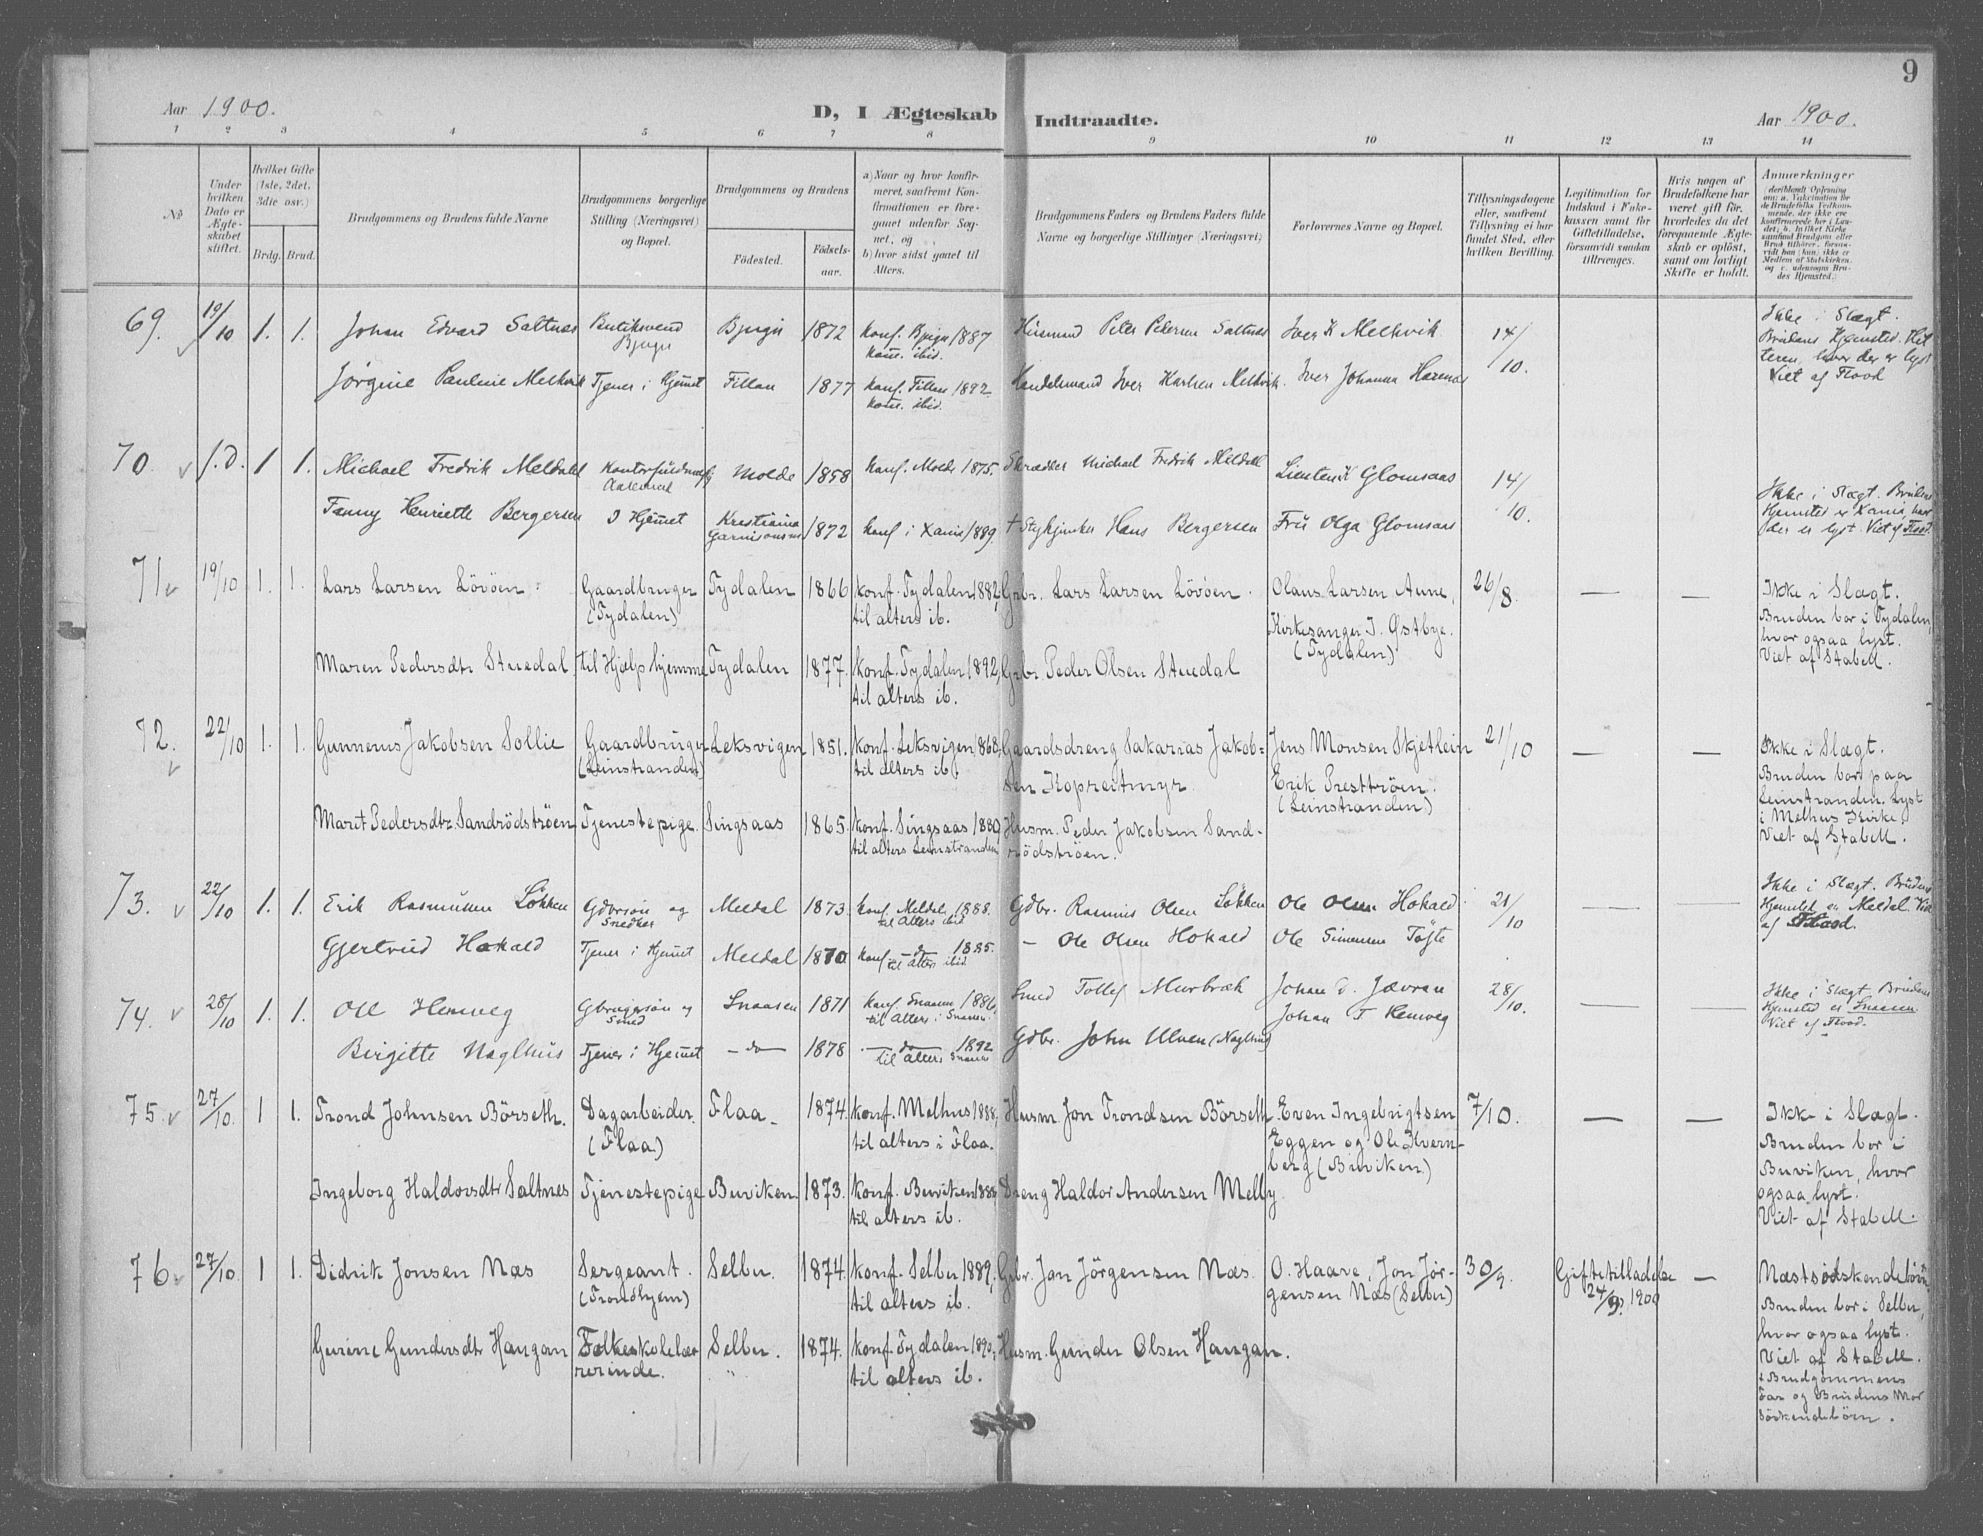 9
Aar 1900.
D, I Ægteskab Indtraadte.
Aar 1900.
1 2 3 4 5 6 7 8 9 10 11 12 13 14
No
Under hvilken Dato er Ægteskabet stiftet.
Hvilket Gifte (1ste, 2det, 3die osv.)
Brdg. Brud.
Brudgommens og Brudens fulde Navne
Brudgommens borgerlige Stilling (Næringsvei) og Bopæl.
Brudgommens og Brudens
Fødested.
Fødselsaar.
a) Naar og hvor konfirmeret, saafremt Konfirmationen er foregaaet udenfor Sognet, og
b) hvor sidst gaaet til Alters.
Brudgommens Faders og Brudens Faders fulde Navne og borgerlige Stillinger (Næringsvei)
Forlovernes Navne og Bopæl.
Tillysningsdagene eller, saafremt Tillysning ei har fundet Sted, efter hvilken Bevilling.
Legitimation for Indskud i Enkekassen samt for Giftetilladelse, forsaavidt saadan tiltrænges.
Hvis nogen af Brudefolkene har været gift før, hvorledes da det foregaaende Ægteskab er opløst, samt om lovligt Skifte er holdt.
Anmerkninger
69. 19/10 1. 1. Johan Edvard Saltnes Butiksvend Bjugn Bjugn 1872 konf. Bjugn 1887 kom. ibid. Husmand Peter Petersen Saltnes Iver K Melkvik 14/10. Ikke i Slægt. Brudens Hjemsted Hitteren, hvor der er lyst Viet af Flood
Jørgine Pauline Melkvik Tjener i Hjemmet Fillan 1877 konf. Fillan 1892 kom. ibid. Handelsmand Iver Karlsen Melkvik. Iver Johanna
70. s.D. 1 1. Michael Fredrik Meldahl Kontorfuldmægtig Aalesund Molde 1858 konf. Molde 1875. Skrædder Michael Fredrik Meldahl Glomsaas 14/10. Ikke i Slægt. Brudens Hjemsted er Xania, hvor der er lyst. Viet af Flood.
Fanny Henriette Bergersen I Hjemmet Kristiania Garnisonsm. 1872 konf i Xania 1889. + Stykjunker Hans Bergersen Fru Olga Glomsaas
71 19/10 1. 1. Lars Larsen Løvøen. Gaardbruger (Tydalen) Tydalen 1866 konf. Tydalen 1882, til alters ib. Grbr. Lars Larsen Løvøen. Olaus Larsen Aune, Kirkesanger J. Østbye. (Tydalen) 26/8. — — Ikke i Slægt. Bruden bor i Tydalen, hvor ogsaa lyst. Viet af Stabell.
Maren Pedersdtr Stuedal til Hjælp hjemme Tydalen 1877. konf. Tydalen 1892, til alters ib. Grbr. Peder Olsen Stuedal
72. 22/10 1. 1. Gunnerus Jakobsen Sollie Gaardbruger (Leinstranden) Leksvigen 1851. konf. Leksvigen 1868, til alters ib. Gaardsdreng Sakarias Jakobsen Kopreitmyr Jens Monsen Skjetlein Erik Presttrøen. (Leinstranden) 21/10 — — Ikke i Slægt. Bruden bor paa Leinstranden. Lyst i Melhus Kirke. Viet af Stabell.
Marit Pedersdtr. Sandrødstrøen Tjenestepige. Singsaas 1865. konf. Singsaas 1880, til alters Leinstranden Husm. Peder Jakobsen Sandrødstrøen.
73. 22/10 1. 1. Erik Rasmussen Løkken Gdbrsøn og Snedker Meldal 1873. konf. Meldal 1888. til Alters ibid Gdbr. Rasmus Olsen Løkken Ole Olsen Hokald 21/10 — — Ikke i Slægt. Brudens Hjemsted er Meldal. Viet af Flood.
Gjertrud Hokald Tjener i Hjemmet Meldal 1870. konf — do — 1885. til Alters ibid — Ole Olsen Hokald Ole Simensen Tøfte
74. 28/10 1. 1. Ole Hemveg Gbrugersøn og Smed Snaasen 1871 konf Snaasen 1886, til Alters i Snaasen. Smed Tollef Murbræk Johan Johan T Hemveg 28/10. — — Ikke i Slægt. Brudens Hjemsted er Snaasen. Viet af Flood.
Birgitte Naglhus Tjener i Hjemmet — do — 1878 — do — 1892 til Alters Snaasen Gdbr. John Ulven (Naglhus)
75. 27/10. 1 1. Trond Johnsen Børseth. Dagarbeider. (Flaa) Flaa. 1874. konf. Melhus 1888, til alters i Flaa. Husm. Jon Trondsen Børseth. Even Ingebrigtsen Eggen og Ole Kvernberg (Buviken) 7/10. — — Ikke i Slægt. Bruden bor i Buviken, hvor ogsaa lyst. Viet af Stabell.
Ingeborg Haldorsdtr Saltnes Tjenestepige Buviken 1873. konf. Buviken 1888, til alters ib. Dreng Haldor Andersen Melby
76 27/10. 1 1. Didrik Jonsen Næs Sergeant. (Trondhjem) Selbu. 1874. konf. Selbu 1889, til alters ib. Grbr. Jon Jørgensen Næs. O. Haave, Jon Jørgensen Næs (Selbu) 30/9. Giftetilladelse 24/9. 1900 — Næstsødskendebørn. Bruden bor i Selbu, hvor ogsaa lyst. Viet af Stabell. + Brudgommens Far og Brudens Mor Søskendebørn.
Gurine Gundersdtr Haugan Folkeskolelærerinde. Selbu. 1874. konf. Tydalen 1890, til alters ib. Husm. Gunder Olsen Haugan.